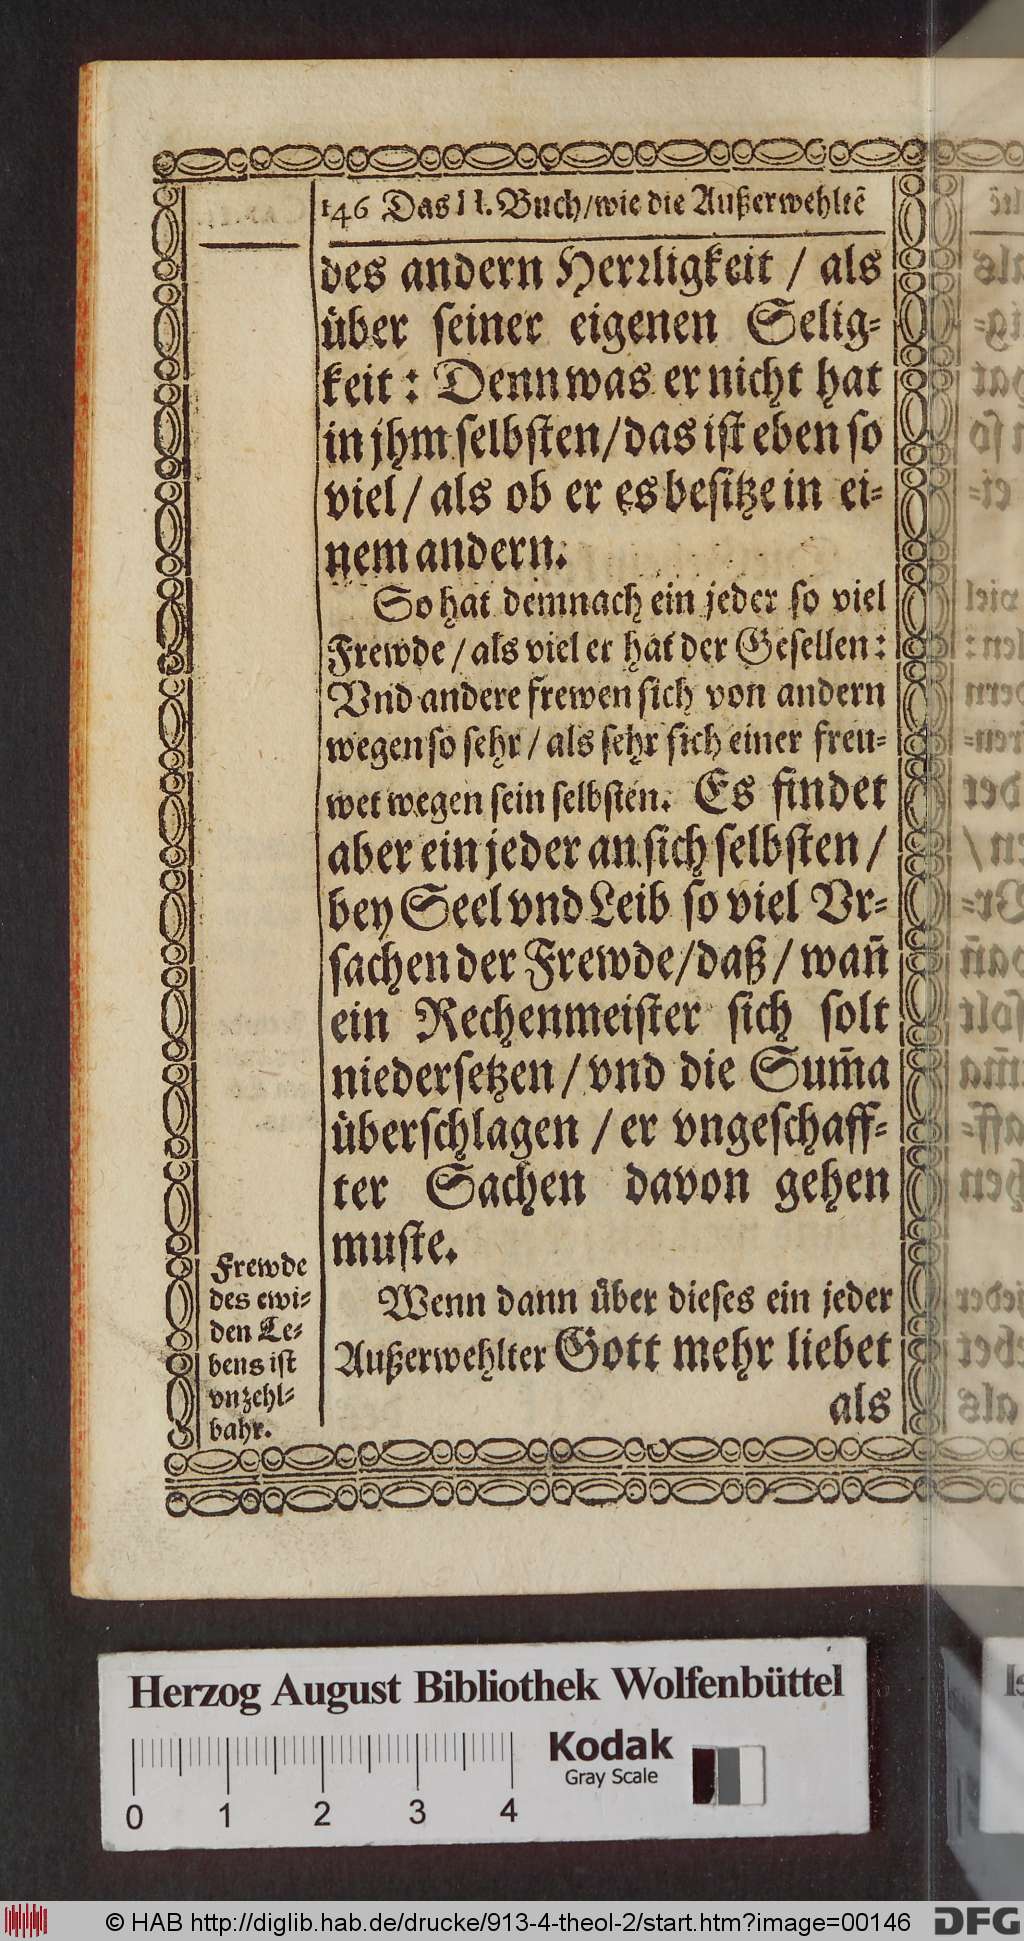 146 Das II. Buch/wie die Außerwehltẽ
des andern Herꝛligkeit / als
über seiner eigenen Selig-
keit : Denn was er nicht hat
in jhm selbsten/das ist eben so
viel/ als ob er es besitze in ei-
nem andern.
So hat demnach ein jeder so viel
Frewde / als viel er hat der Gesellen:
Vnd andere frewen sich von andern
wegen so sehr / als sehr sich einer freu-
wet wegen sein selbsten. Es findet
aber ein jeder an sich selbsten /
bey Seel vnd Leib so viel Vr-
sachen der Frewde/daß / wañ
ein Rechenmeister sich solt
niedersetzen / vnd die Sum̃a
überschlagen / er vngeschaff-
ter Sachen davon gehen
muste.
Frewde
des ewi-
den Le-
bens ist
vnzehl-
bahr.
Wenn dann über dieses ein jeder
Außerwehlter Gott mehr liebet
als
Herzog August Bibliothek Wolfenbüttel
Kodak
Gray Scale
0 1 2 3 4
© HAB http://diglib.hab.de/drucke/913-4-theol-2/start.htm?image=00146
DFG